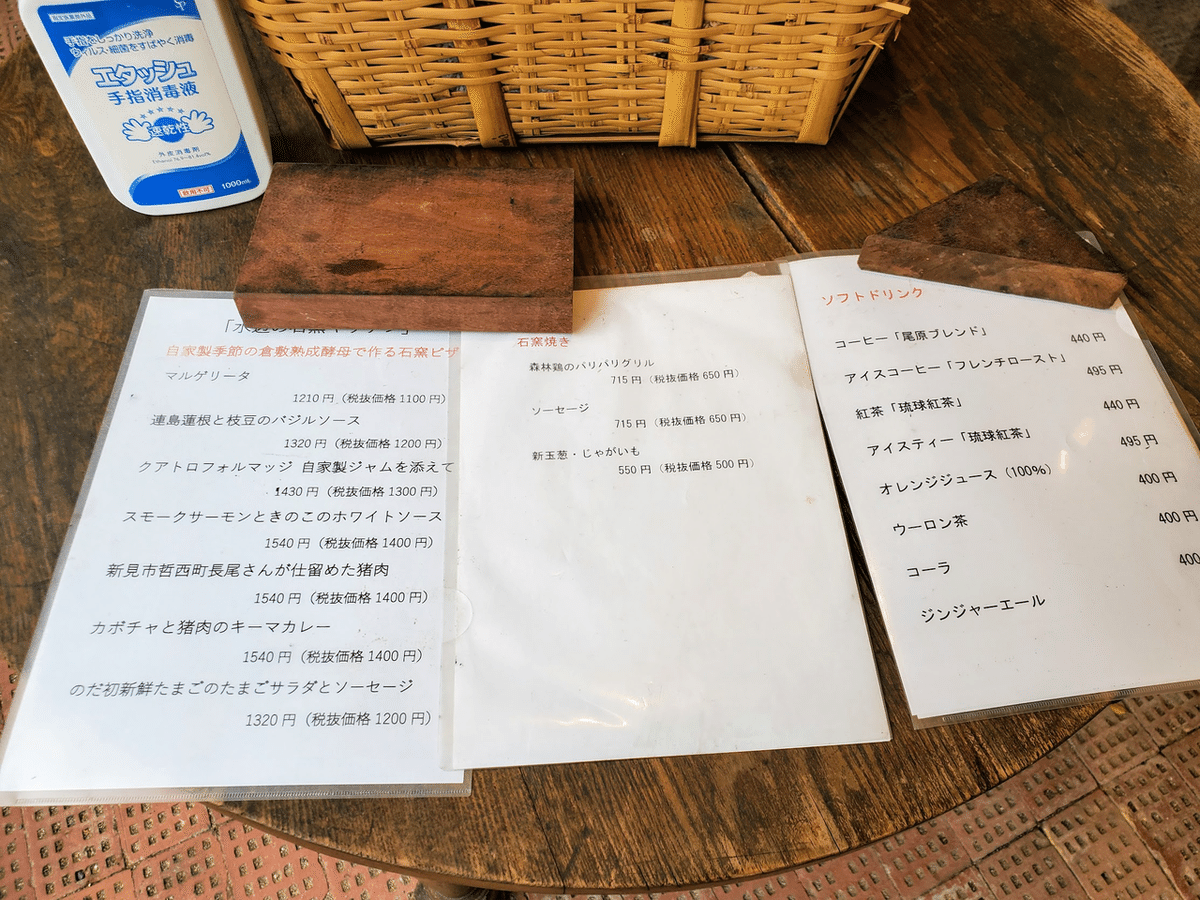 手指をしっかり洗浄
ウィルス・細菌をすばやく消毒
エタッシュ
手指消毒液
速乾性
外皮消毒剤
飲用不可 1000mL
自家製季節の倉敷熟成酵母で作る石窯ピザ
マルゲリータ
1210 円（税抜価格 1100 円）
連島蓮根と枝豆のバジルソース
1320 円（税抜価格 1200 円）
クアトロフォルマッジ 自家製ジャムを添えて
1430 円（税抜価格 1300 円）
スモークサーモンときのこのホワイトソース
1540 円（税抜価格 1400 円）
新見市哲西町長尾さんが仕留めた猪肉
1540 円（税抜価格 1400 円）
カボチャと猪肉のキーマカレー
1540 円（税抜価格 1400 円）
のだ初新鮮たまごのたまごサラダとソーセージ
1320 円（税抜価格 1200 円）
石窯焼き
森林鶏のパリパリグリル
715 円（税抜価格 650 円）
ソーセージ
715 円（税抜価格 650 円）
新玉葱・じゃがいも
550 円（税抜価格 500 円）
ソフトドリンク
コーヒー「尾原ブレンド」 440 円
アイスコーヒー「フレンチロースト」 495 円
紅茶「琉球紅茶」 440 円
アイスティー「琉球紅茶」 495 円
オレンジジュース（100%） 400 円
ウーロン茶 400 円
コーラ 400
ジンジャーエール